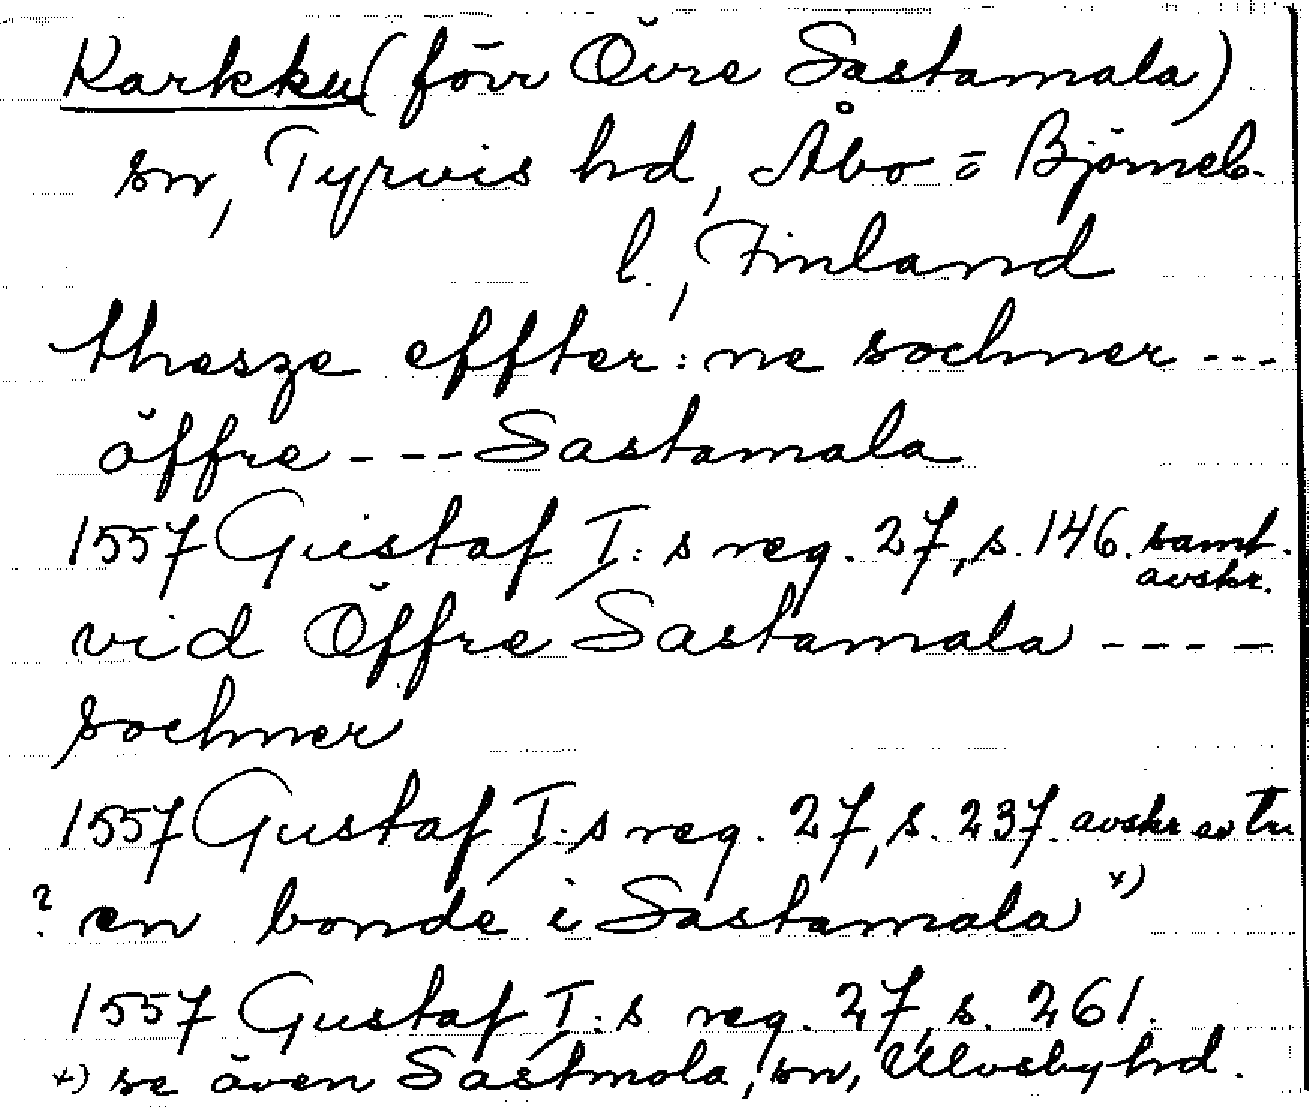 Karkku (förr Övre Sastamala)
sn, Tyrvis hd, Åbo = Björneb.
l., Finland
thesze effter:ne sochner ---
öffre --- Sastamala
1557 Gustaf I:s reg. 27, s. 146. samt.
avskr.
vid Öffre Sastamala ----
sochner
1557 Gustaf I:s reg. 27, s. 237. avskr av
? en bonde i Sastamala *)
1557 Gustaf I:s reg. 27, s. 261.
*) se även Sastmola, sn, Ulvsby hd.